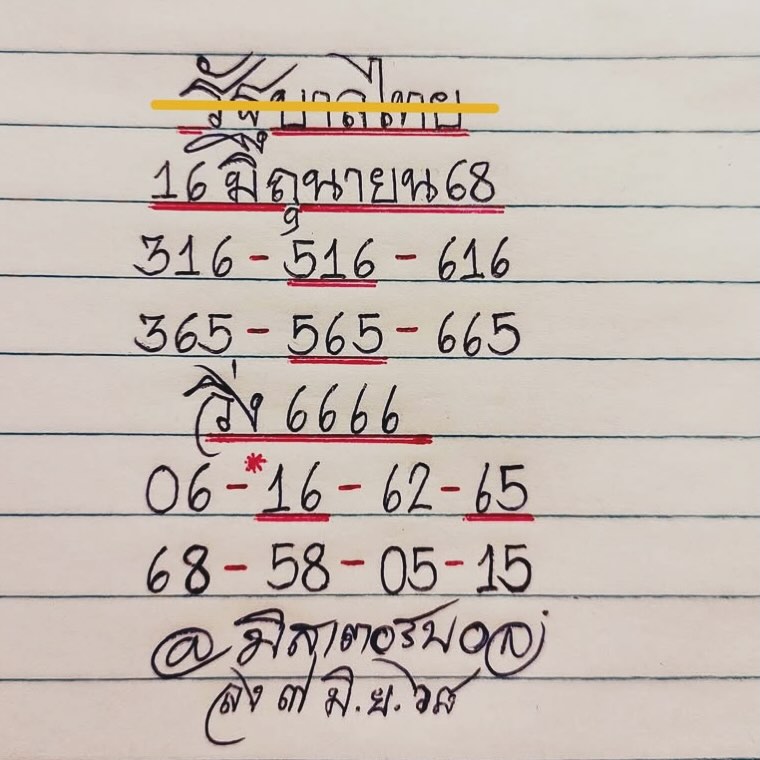 รัฐบาลไทย
16 มิถุนายน 68
316 - 516 - 616
365 - 565 - 665
วิ่ง 6666
06 -*16 - 62 - 65
68 - 58 - 05 - 15
@มิสเตอร์บอล